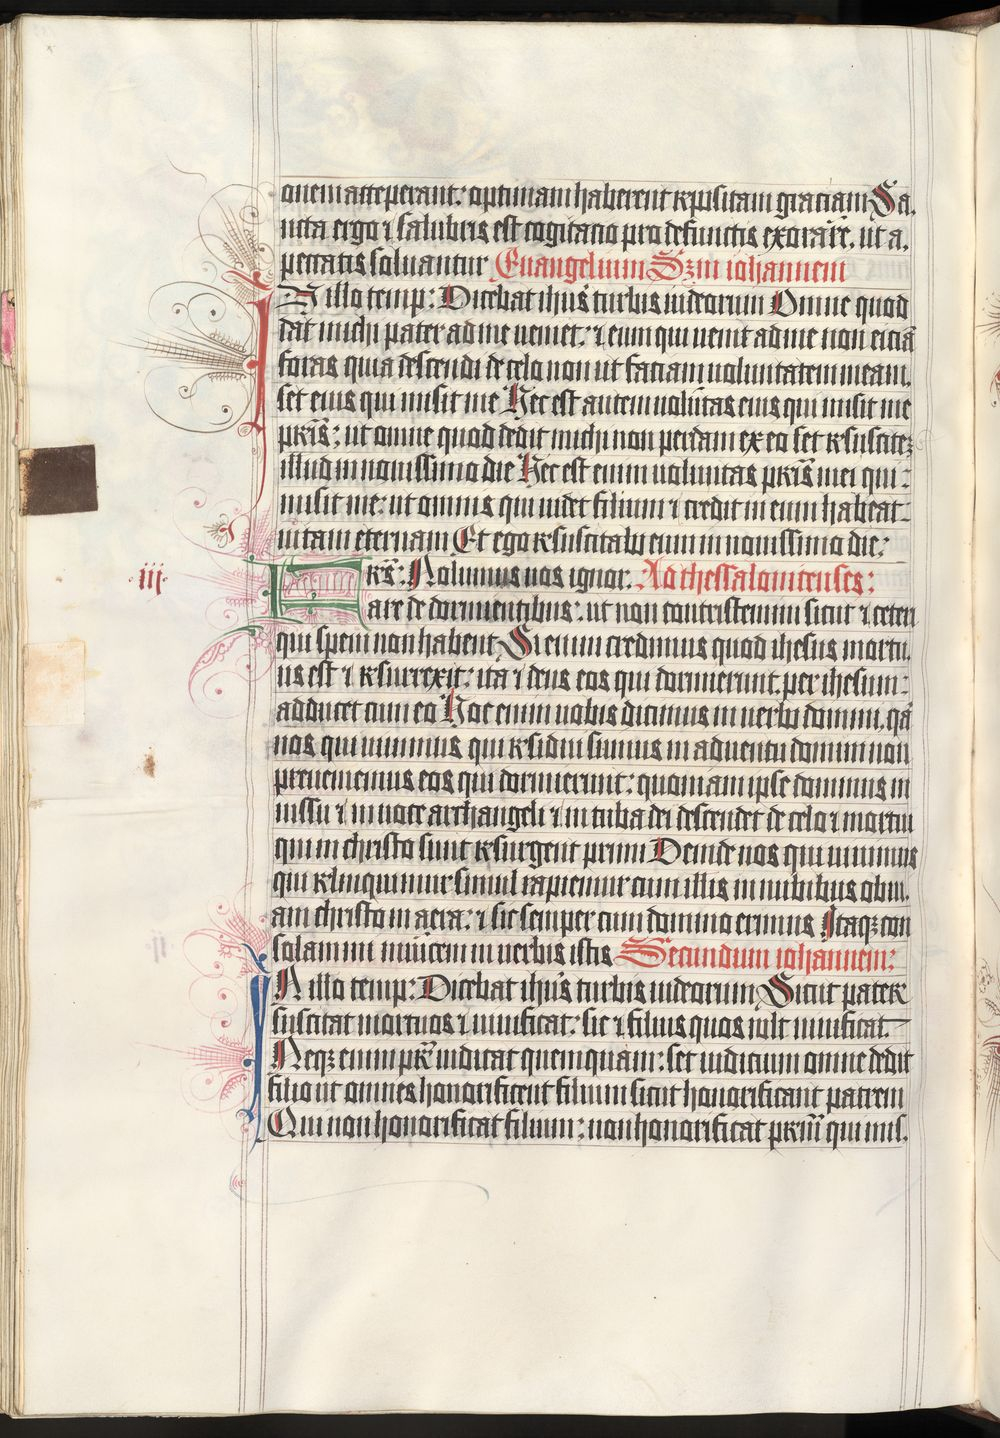 onem acceperant: optimam haberent repositam graciam Sa,
ncta ergo ⁊ salubris est cogitatio pro defunctis exorare, ut a,
peccatis soluantur Euangelium Sꝫm iohannem
In illo temp: Dicebat ihūs turbis iudeorum Omne quod
dat michi pater ad me ueniet: ⁊ eum qui uenit ad me non eiciā
foras quia descendi de celo non ut faciam uoluntatem meam,
set eius qui misit me Hec est autem uolūtas eius qui misit me
pr̄is: ut omne quod dedit michi non perdam ex eo set resuscitē
illud in nouissimo die Hec est enim uoluntas pr̄is mei qui
misit me: ut omnis qui uidet filium ⁊ credit in eum habeat
uitam eternam Et ego resuscitabo eum in nouissimo die:
iii. Frs̄: Nolumus uos ignor. Ad thessalonicenses:
are de dormientibus: ut non contristemini sicut ⁊ ceteri
qui spem non habent Si enim credimus quod ihesus mortu,
us est ⁊ resurrexit: ita ⁊ deus eos qui dormierunt per ihesum:
adducet cum eo Hoc enim uobis dicimus in uerbo domini, qā
nos qui uiuimus qui residui sumus in aduentu domini non
preueniemus eos qui dormierunt: quoniam ipse dominus in
iussu ⁊ in uoce archangeli ⁊ in tuba dei descendet de celo ⁊ mortui
qui in christo sunt resurgent primi Deinde nos qui uiuimus
qui relinquimur simul rapiemur cum illis in nubibus obui,
am christo in aera: ⁊ sic semper cum domino erimus Itaqꝫ con
solamini inuicem in uerbis istis Secundum iohannem:
In illo temp: Dicebat ihūs turbis iudeorum Sicut pater
suscitat mortuos ⁊ uiuificat: sic ⁊ filius quos uult uiuificat
Neqꝫ enim pr̄ iudicat quemquam: set iudicium omne dedit
filio ut omnes honorificent filium sicut honorificant patrem
Qui non honorificat filium: non honorificat pr̄em qui mis,